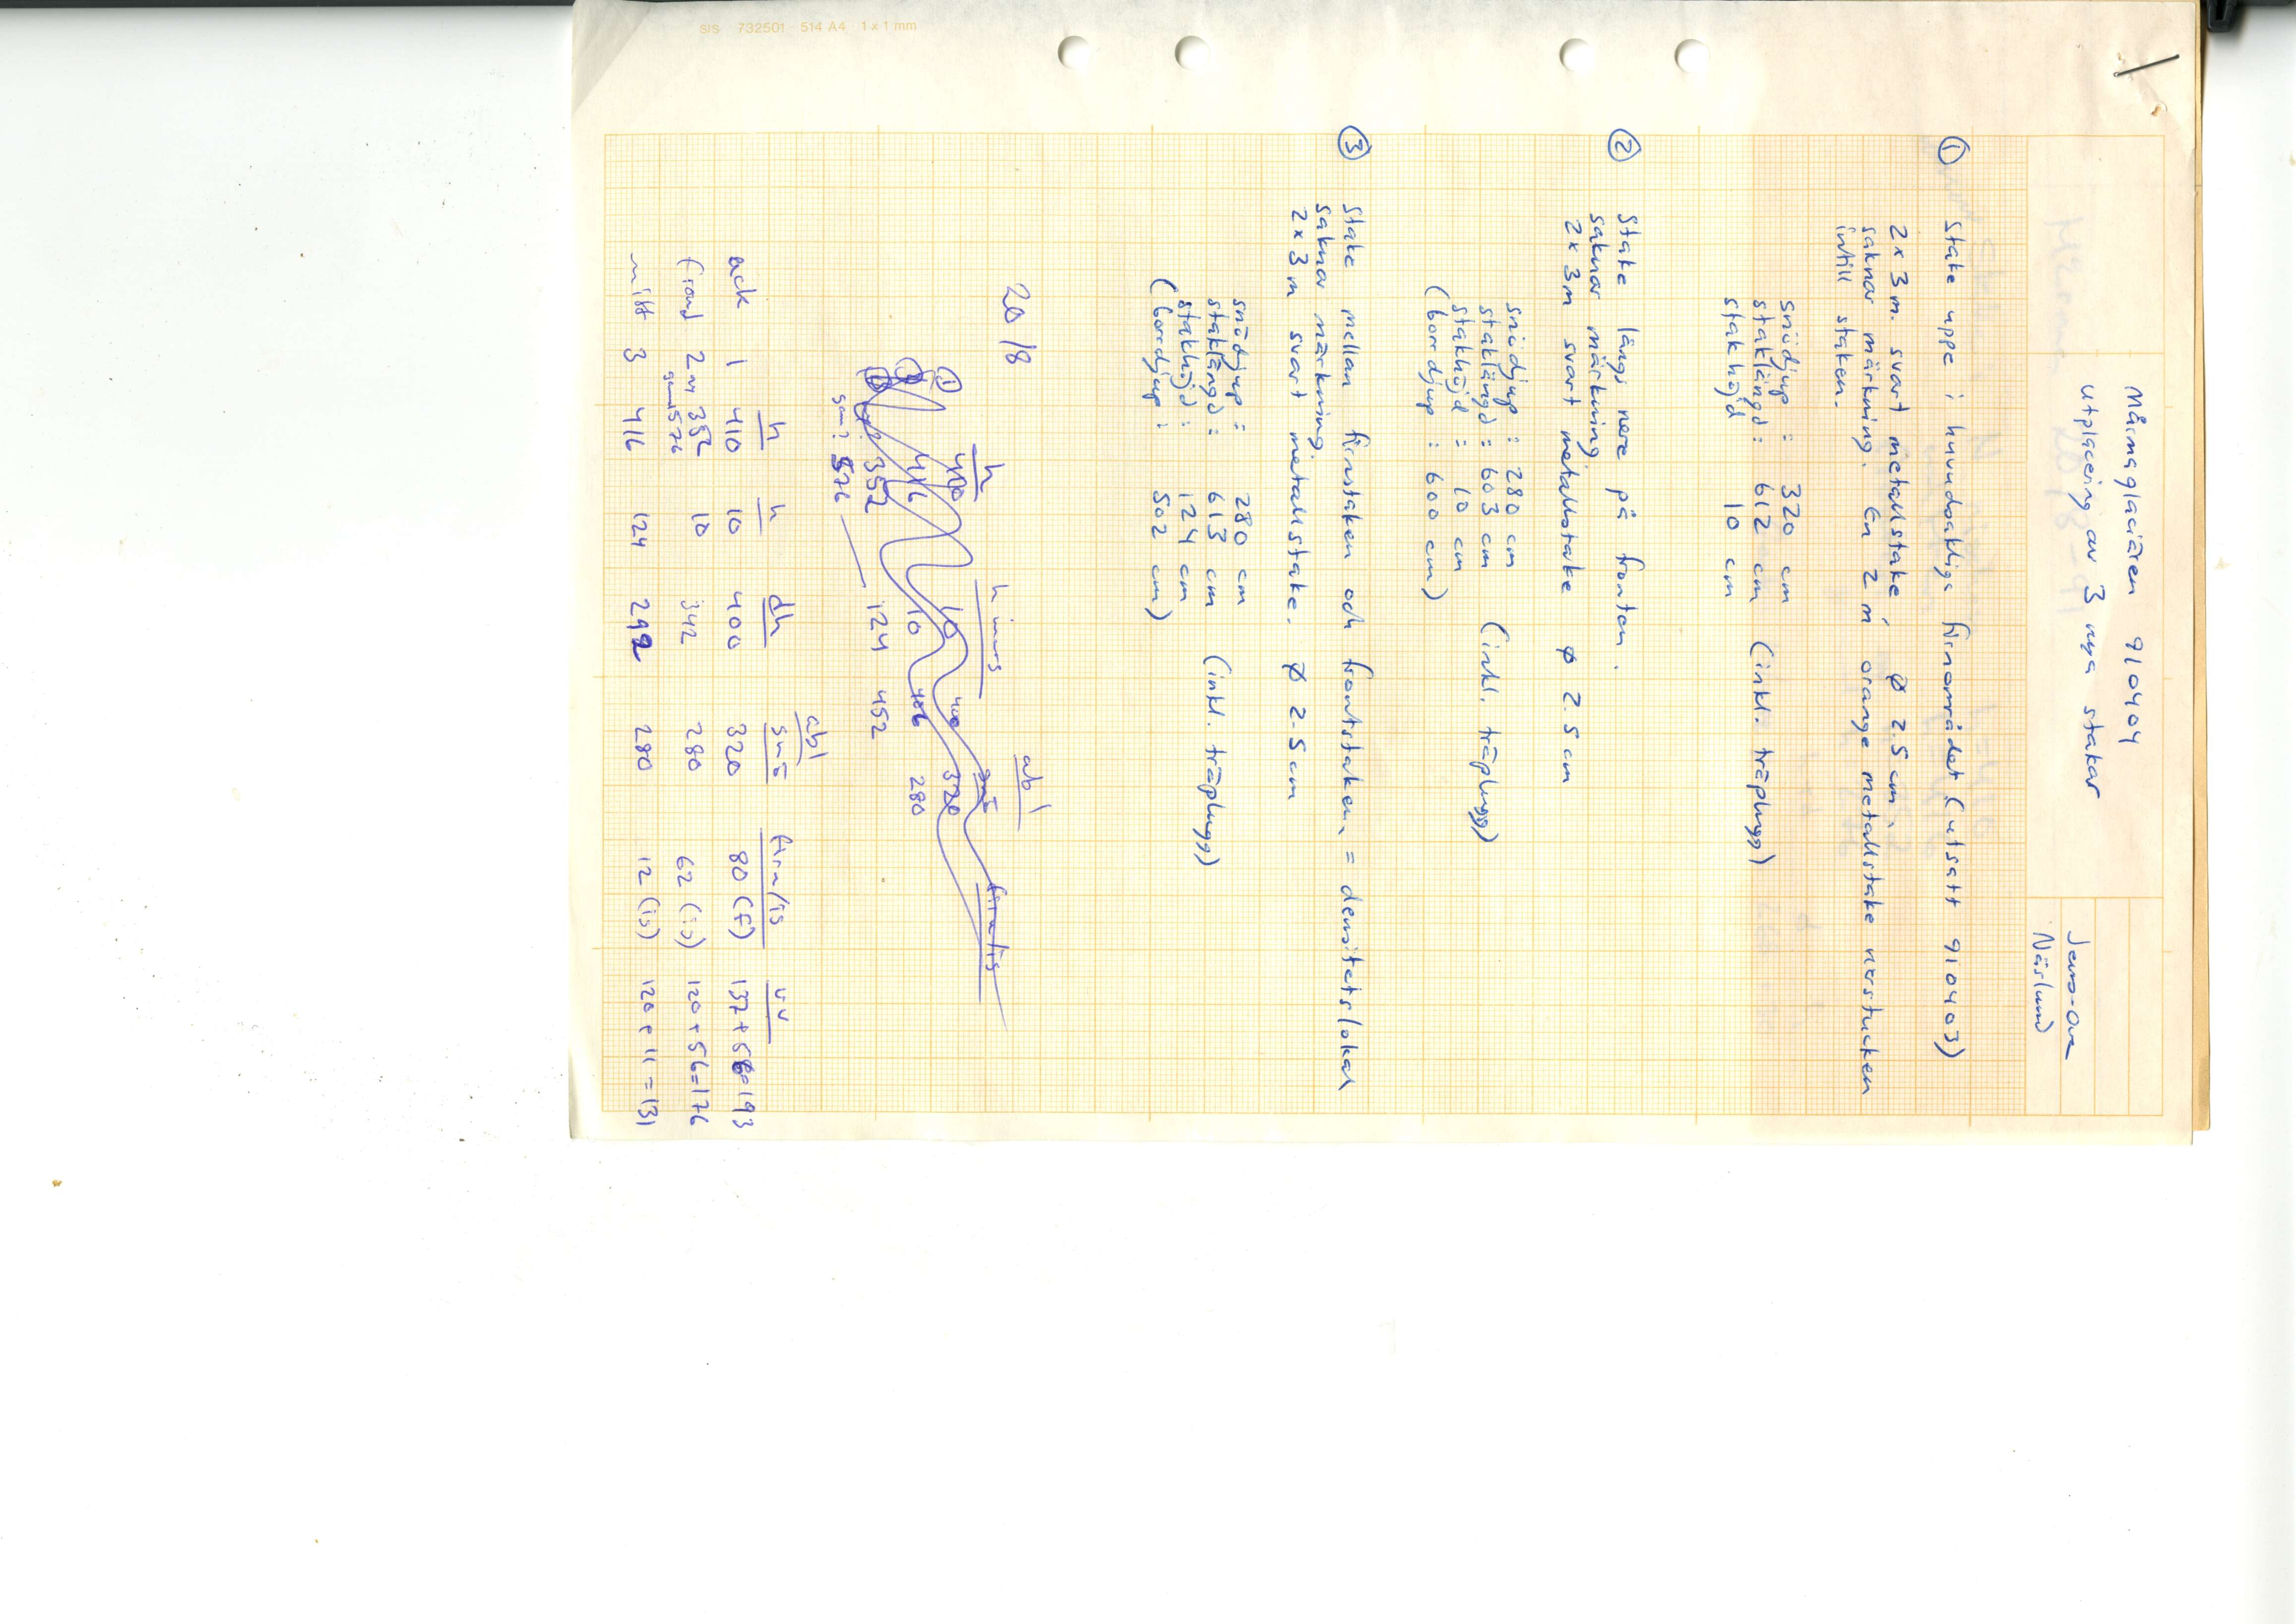 Mårmaglaciären 910404
utplacering av 3 nya stakar
Jens-Ove
Näslund
① Stake uppe i huvudsakliga firnområdet (utsatt 910403)
2x3m. svart metallstake, ø 2.5 cm.
saknar märkning. En 2 m orange metallstake nerstucken
intill staken.
snödjup : 320 cm
staklängd : 612 cm (inkl. träplugg)
stakhöjd 10 cm
② Stake längs nere på fronten.
saknar märkning.
2x3m svart metallstake ø 2.5 cm
snödjup : 280 cm
staklängd : 603 cm (inkl. träplugg)
stakhöjd : 10 cm
(borrdjup : 600 cm)
③ Stake mellan firnstaken och frontstaken. = densitetslokal
saknar märkning.
2x3m svart metallstake. ø 2.5 cm
snödjup : 280 cm
staklängd : 613 cm (inkl. träplugg)
stakhöjd : 124 cm
(borrdjup : 502 cm)
20/8
abl
h h mars snö firn/is
① 410 10 400 320
416 10 406 280
352 124 452
gam? 576
abl
h h dh snö firn/is vv
ack 1 410 10 400 320 80 (f) 137+56=193
front 2 ny 352 10 342 280 62 (is) 120+56=176
gammal 576
mitt 3 416 124 292 280 12 (is) 120+11=131
SIS 732501 514 A4 1x1 mm